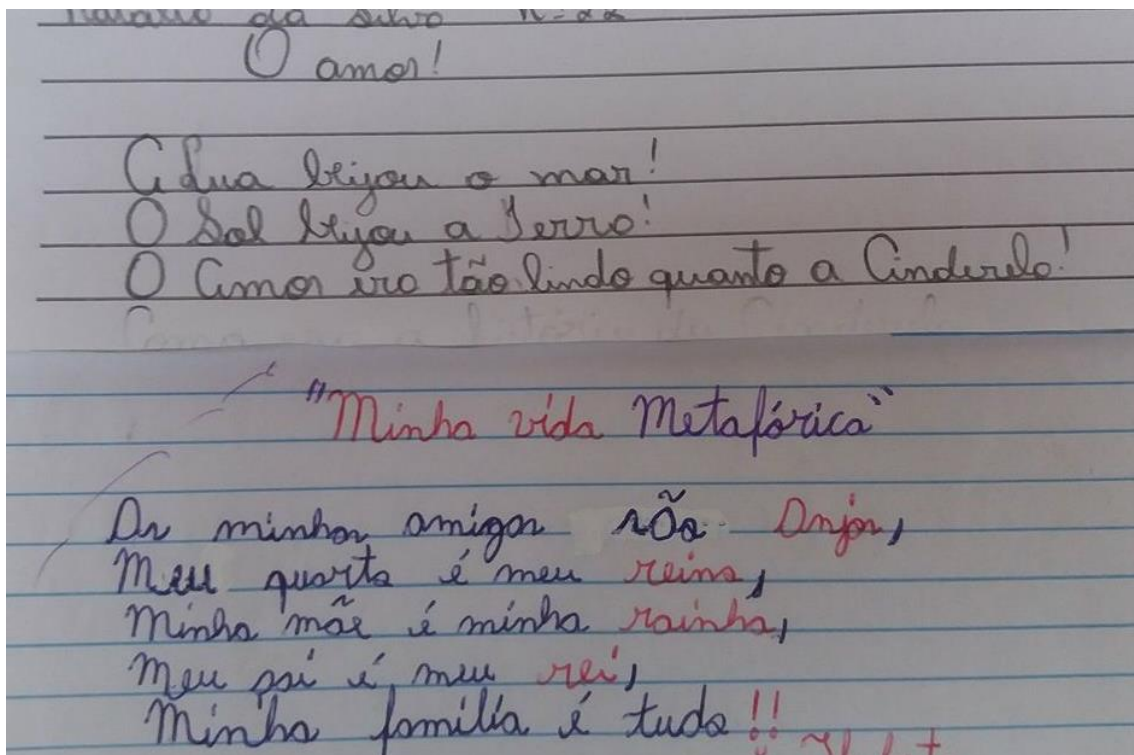 da Silva n-22
O amor!
A Lua beijou o mar!
O Sol beijou a Terra!
O Amor era tão lindo quanto a Cinderela!
"Minha vida Metafórica"
As minhas amigas são Anjos,
Meu quarto é meu reino,
Minha mãe é minha rainha,
Meu pai é meu rei,
Minha família é tudo!!